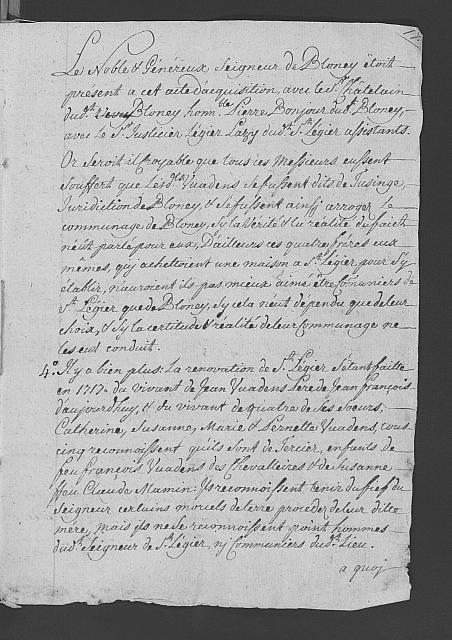 Le Noble & Généreux Seigneur de Bloney étoit
présent a cet acte d'acquisition, avec le Sr. Châtelain
dudt. Bloney honble. Pierre Bonjour dudt. Bloney,
avec le Sr. Justicier Légier Lazy dudt. St. Légier assistants.
Or seroit il croyable que tous ces Messieurs eussent
souffert que lesds. Vuadens se fussent dits de Tusinge,
Juridiction de Bloney, & se fussent ainsi arrogez le
communage de Bloney, sy la Vérité & la réalité du fait
n'eut parlé pour eux, D'ailleurs ces quatre frères eux
mêmes, qui achettoient une maison a St. Légier pour s'y
établir, n'auroient ils pas mieux aimé être comuniers de
St. Légier que de Bloney, sy cela n'eut dépendu que de leur
choix, & sy la certitude & réalité de leur communage ne
les eut conduit.
4.º Il y a bien plus: La renovation de St. Légier s'étant faitte
en 1717. du vivant de Jean Vuadens Pere de Jean François
d'aujourdhuy, & du vivant de quatre de ses soeurs,
Catherine, Susanne, Marie & Pernette Vuadens, tous
cinq reconnoissent qu'ils sont de Tercier, enfants de
feu François Vuadens des Chevalleires & de Susanne
ffeu Claude Mamin: Ils reconnoissent tenir du fief du
Seigneur certains morcels de terre procéder de leur ditte
mere, mais ils ne se reconnoissent point hommes
dudt. Seigneur de St. Légier, nj Communiers dudt. Lieu.
a quoj